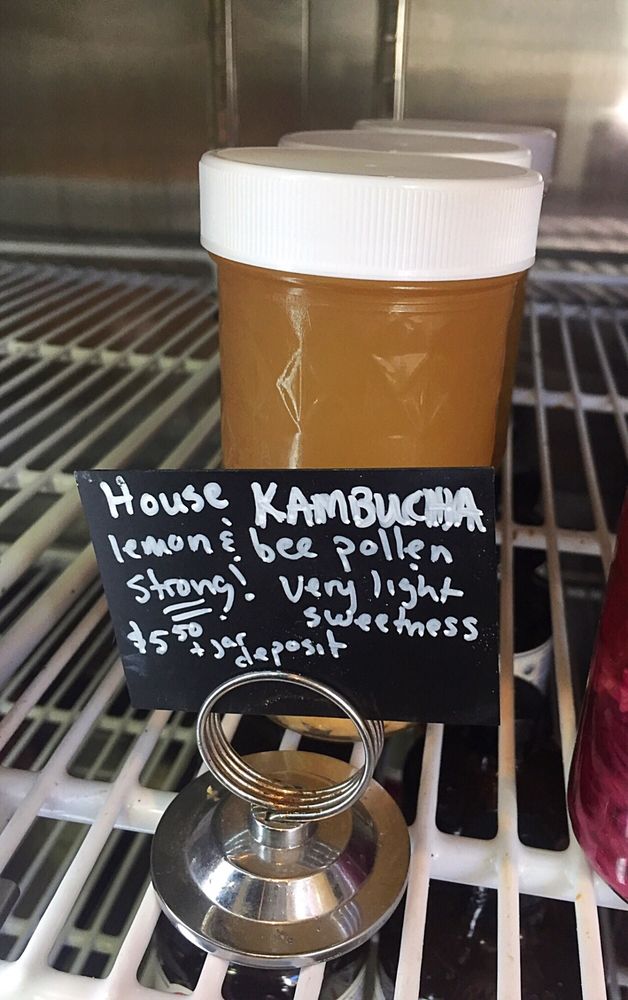 House KAMBUCHA
lemon & bee pollen
strong! very light
sweetness
$5.50 + jar deposit